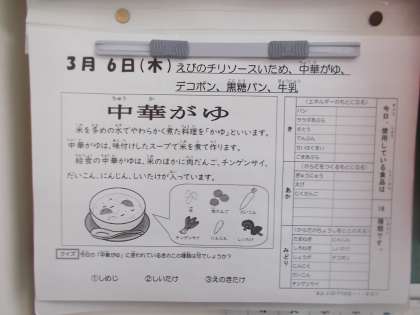 3月 6日(木) えびのチリソースいため、中華がゆ、
デコポン、黒糖パン、牛乳
中華がゆ
米を多めの水でやわらかく煮た料理を「かゆ」といいます。
中華がゆは、味付けしたスープで米を煮て作ります。
給食の中華がゆは、米のほかに肉だんご、チンゲンサイ、
だいこん、にんじん、しいたけが入っています。
チンゲンサイ
にんじん
しいたけ
クイズ 今日の「中華がゆ」に使われているきのこの種類は何でしょうか?
①しめじ ②しいたけ ③えのきたけ
今日、使用している食品は
種類です。
き
(エネルギーのもとになる)
パン
さとう
でんぷん
ごまあぶら
あか
(からだをつくるもとになる)
ぎゅうにゅう
えび
にくだんご
みどり
(からだのちょうしをととのえる)
たまねぎ にんじん
しょうが デコポン
にんにく
だいこん
チンゲンサイ